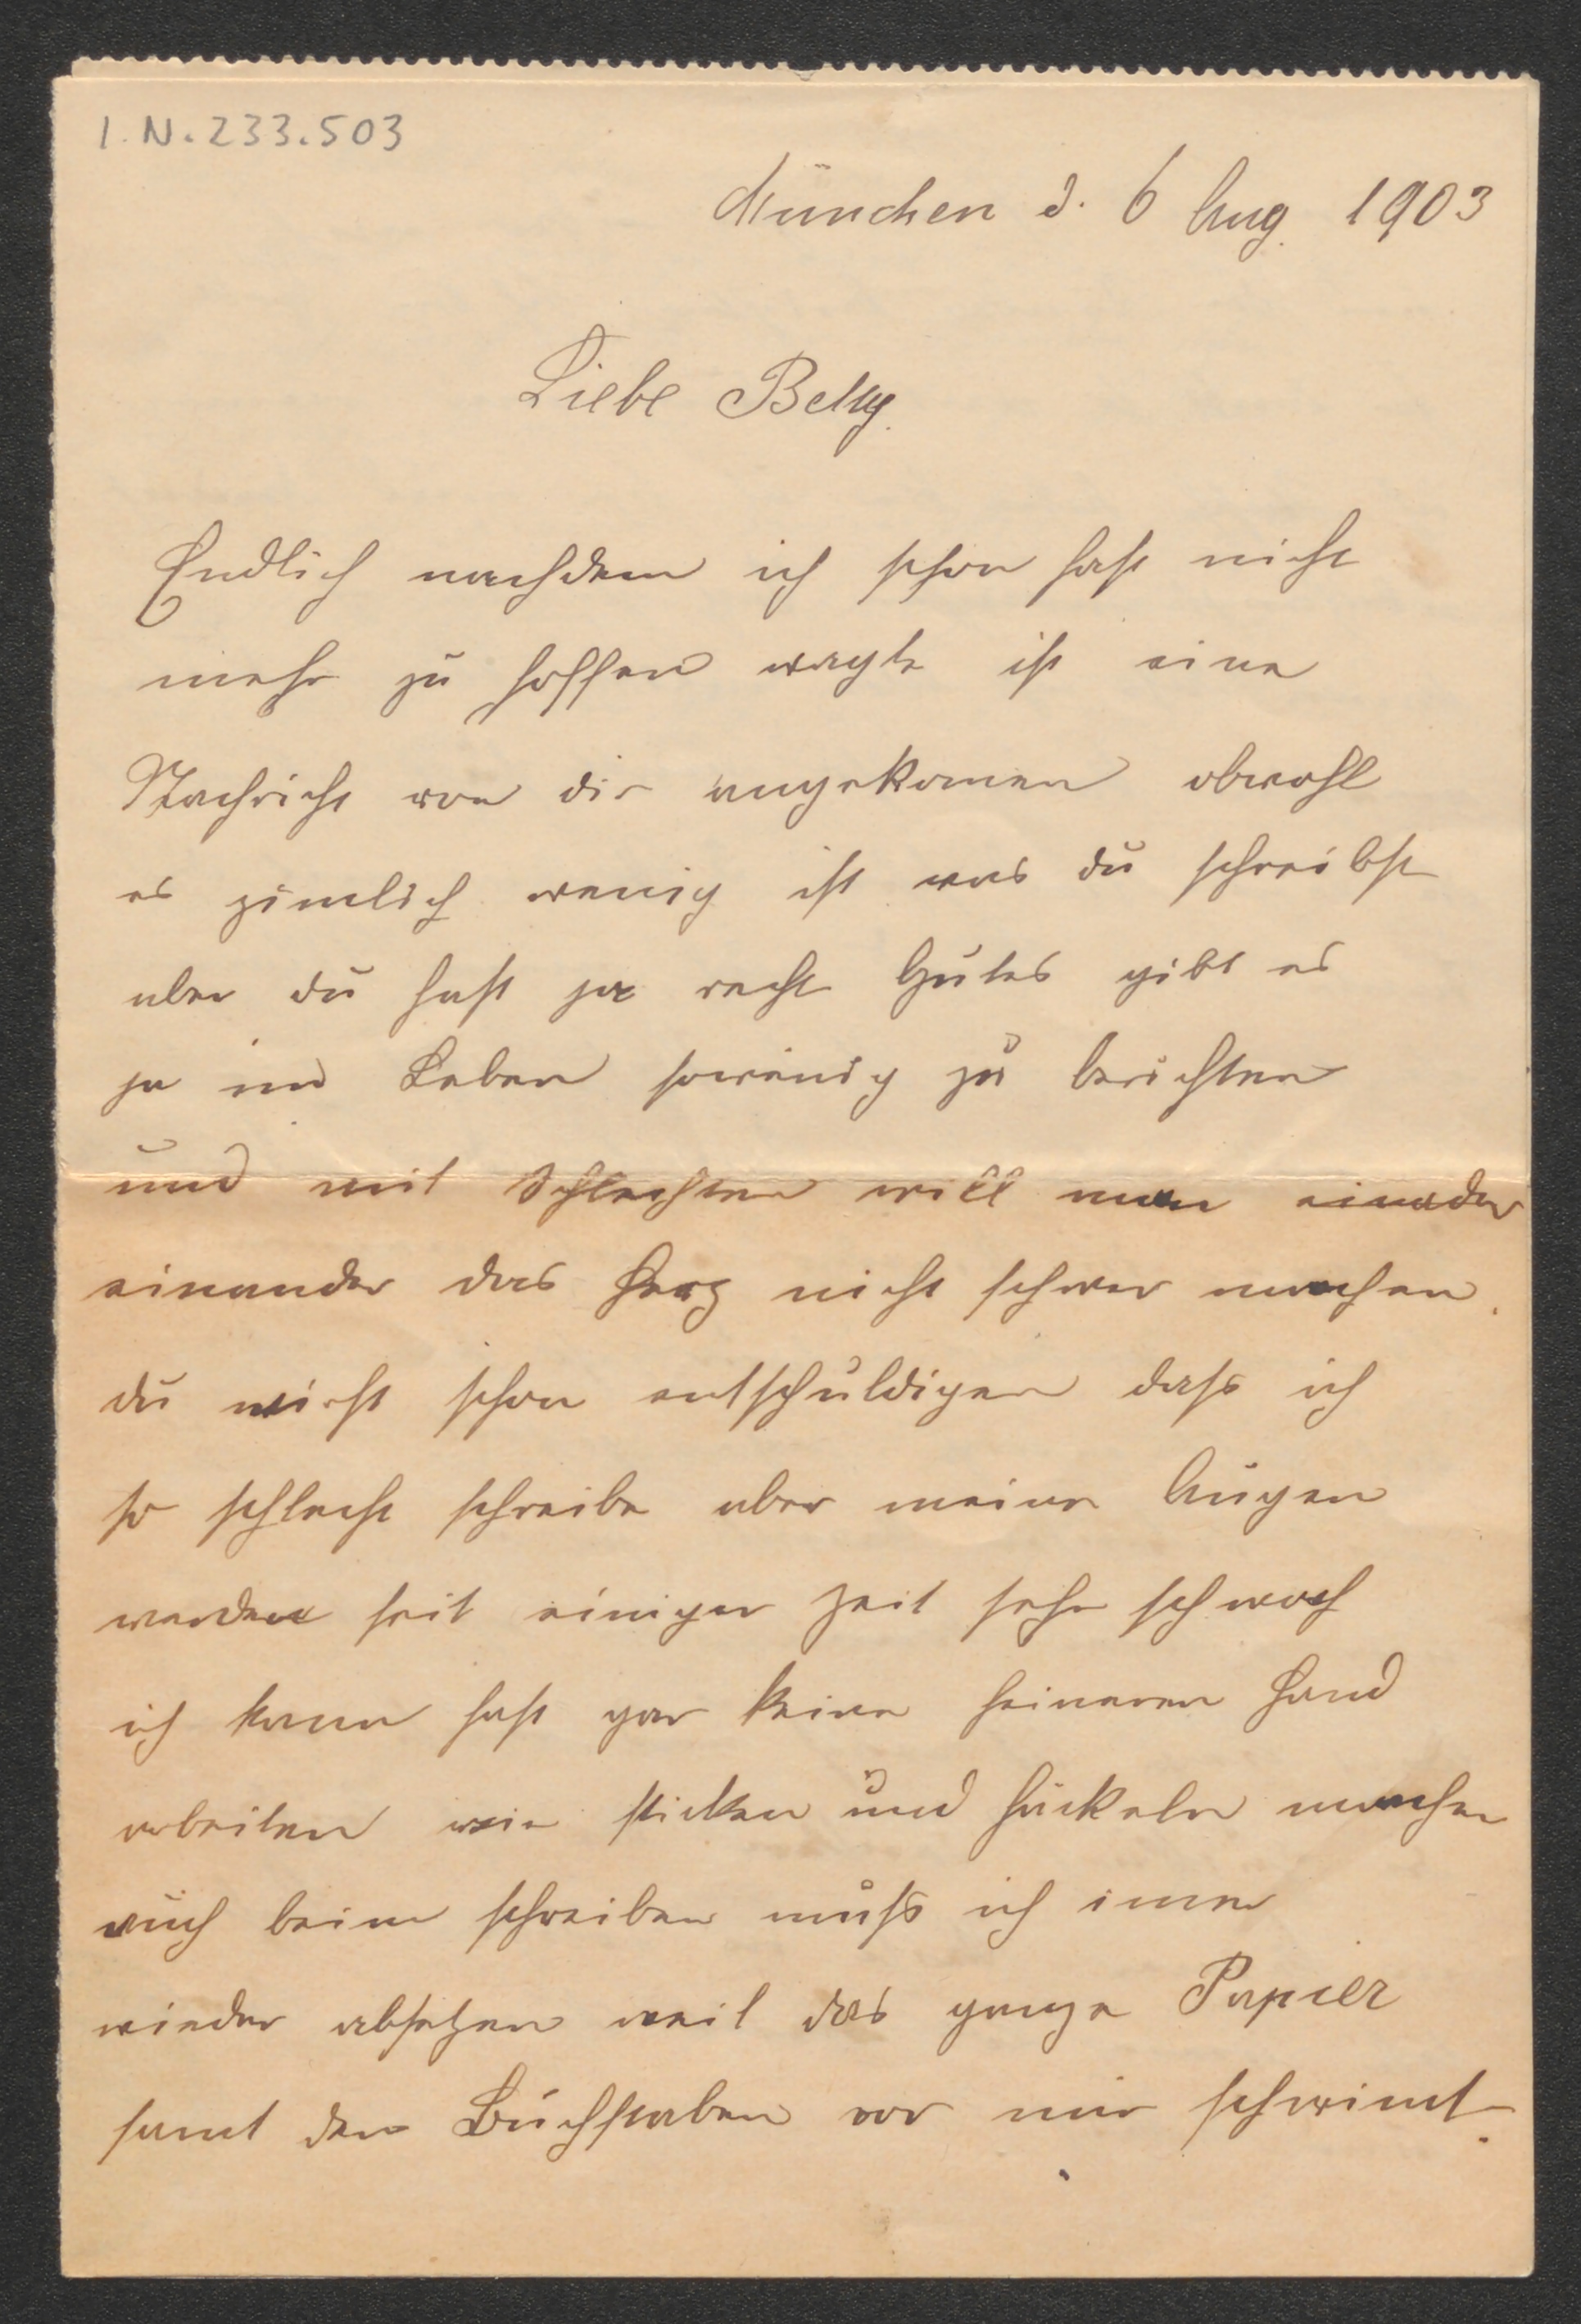 I.N.233.503
München d. 6 Aug. 1903
Liebe Betty.
Endlich nachdem ich schon fast nicht
mehr zu hoffen wagte ist eine
Nachricht von dir angekomen obwohl
es zimlich wenig ist was du schreibst
aber du hast ja recht Gutes gibt es
ja im Leben sowenig zu berichten
und mit Schlechten will man einader
einander das Herz nicht schwer machen.
du wirst schon entschuldigen dass ich
so schlecht schreibe aber meine Augen
werden seit einiger Zeit sehr schwach
ich kann fast gar keine feineren Hand
arbeiten wie sticken und häckeln machen
auch beim schreiben muss ich imer
wieder absetzen weil das ganze Papier
samt den Buchstaben vor mir schwimt.